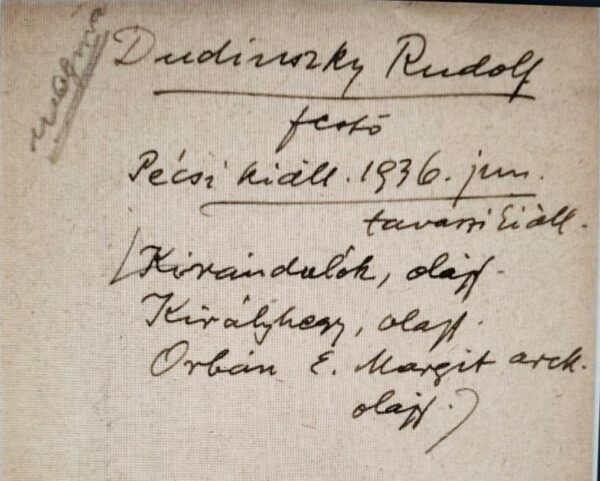 Dudinszky Rudolf
festő
Pécsi kiáll. 1936. jun.
tavaszi kiáll.
(Kirándulók, olajf.
Királyhegy, olajf.
Orbán E. Margit arck.
olajf.)